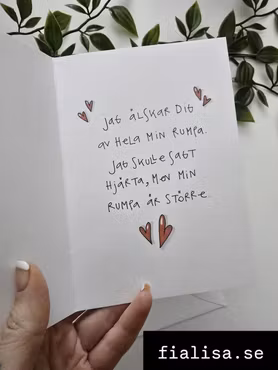 Jag älskar Dig
av Hela Min Rumpa.
Jag skulle sagt
Hjärta, Men Min
Rumpa är större.
fialisa.se